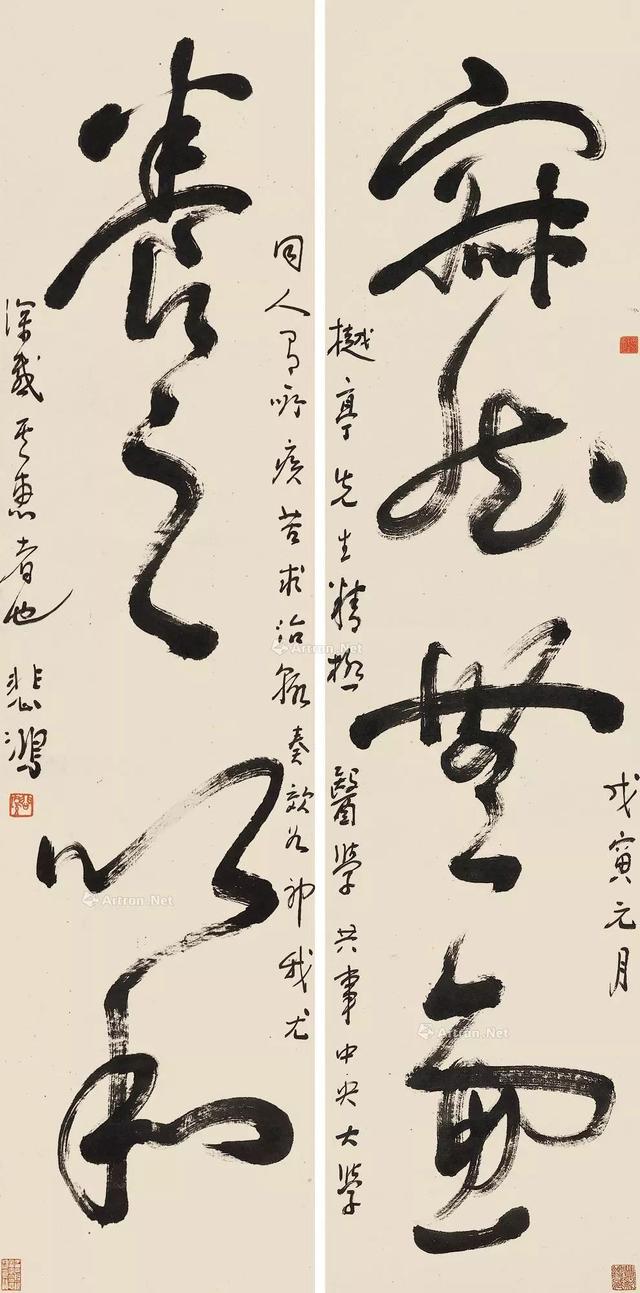 寂然無慮
戊寅元月
樾亭先生精 醫學共事中央大學
養之以和
同人有所疾苦求治輒奏效 神我尤
深感其惠者也 悲鴻
Artron.Net
Artron.Net
Artron.Net